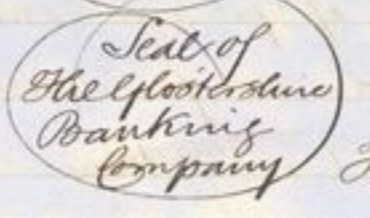 Seal of
The Glostershire
Banking
Company